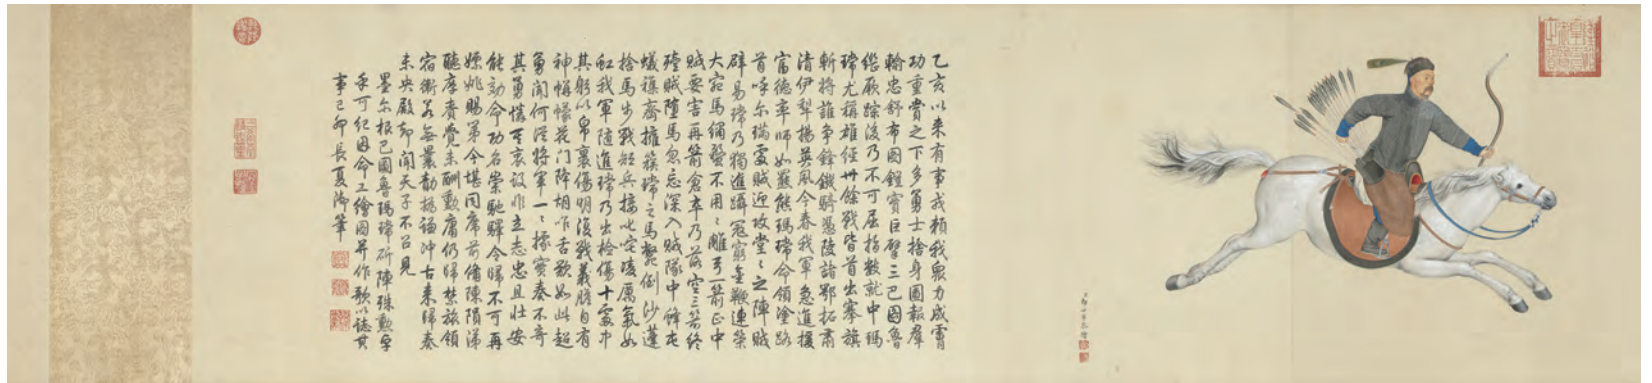 乙亥以來有事戎賴我眾力成膚
功重賞之下多勇士捨身圖報羣
輸忠舒布圖鎧實巨擘三巴圖魯
繼厥踪後乃不可屈指數就中瑪
瑺尤稱雄經卅餘戰皆首出搴旗
斬將誰爭鋒鐵騎憑陵諸鄂拓肅
清伊犁揚英風今春我軍急進援
富德率師如羆熊瑪瑺命領塗路
首呼尔璊處賊迎攻堂〻之陣賊
辟易瑺乃獨進躡寇窮金鞭連策
大宛馬綳弩不用〻雕弓一箭正中
賊要害再箭倉卒乃落空三箭終
殪賊墮馬忽忘深入賊隊中鋒屯
蟻襍齊擁簇瑺之馬斃倒沙蓬
捨馬步戰短兵接叱咤凌厲氣如
虹我軍隨進瑺乃出檢傷十處中
其躬以帛裹傷明復戰義膽自有
神幬幪花門降胡咋舌歎如此超
勇聞何從將軍一〻據實奏不奇
其勇憐其衷設非立志忠且壯安
能効命功名崇馳驛令歸不可再
嫖姚賜第今堪同席前備陳隕涕
聽厚賚覺未酬勳庸仍歸禁旅領
宿衛若無曩勣撝謙沖古來歸奏
未央殿却聞天子不召見
墨尔根巴圖魯瑪瑺斫陣殊勳罕
手可紀因命工繪圖并作歌以誌其
事己卯長夏御筆